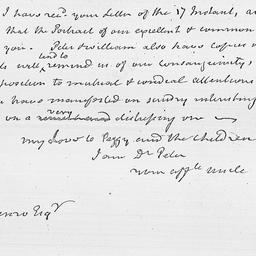 I have recd. your Letter of the 17 Instant, an
that the Portrait of our excellent & common
you. Peter & William also have Copies
tend to
will remind us of our consanguinity,
position to mutual & cordial attentions
have manifested on sundry interesting
very
on a distressing one
my Love to Peggy and the Children
I am Dr Peter
your affte uncle
Esqr